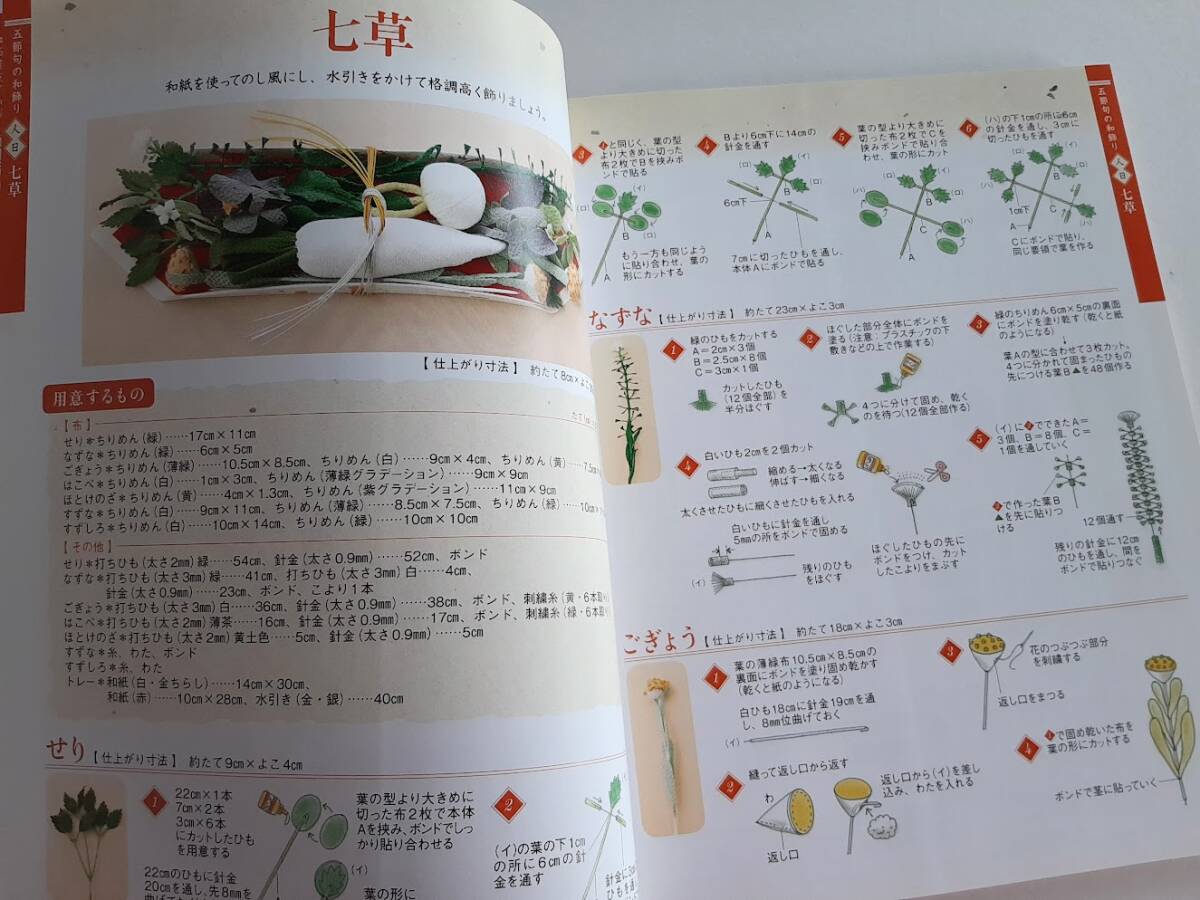 五節句の和飾り
人日
七草
七草
和紙を使ってのし風にし、水引きをかけて格調高く飾りましょう。
【仕上がり寸法】 約たて8cm×よこ
用意するもの
【布】
せり＊ちりめん(緑)……17cm×11cm
なずな＊ちりめん(緑)……6cm×5cm
ごぎょう＊ちりめん(薄緑)……10.5cm×8.5cm、ちりめん(白)……9cm×4cm、ちりめん(黄)……7.5cm
はこべ＊ちりめん(白)……1cm×3cm、ちりめん(薄緑グラデーション)……9cm×9cm
ほとけのざ＊ちりめん(黄)……4cm×1.3cm、ちりめん(紫グラデーション)……11cm×9cm
すずな＊ちりめん(白)……9cm×11cm、ちりめん(薄緑)……8.5cm×7.5cm、ちりめん(緑)……10cm
すずしろ＊ちりめん(白)……10cm×14cm、ちりめん(緑)……10cm×10cm
【その他】
せり＊打ちひも(太さ2mm)緑……54cm、針金(太さ0.9mm)……52cm、ボンド
なずな＊打ちひも(太さ3mm)緑……41cm、打ちひも(太さ3mm)白……4cm、
針金(太さ0.9mm)……23cm、ボンド、こより1本
ごぎょう＊打ちひも(太さ3mm)白……36cm、針金(太さ0.9mm)……38cm、ボンド、刺繍糸(黄・6本取り)
はこべ＊打ちひも(太さ2mm)薄茶……16cm、針金(太さ0.9mm)……17cm、ボンド、刺繍糸(緑・6本取り)
ほとけのざ＊打ちひも(太さ2mm)黄土色……5cm、針金(太さ0.9mm)……5cm
すずな＊糸、わた、ボンド
すずしろ＊糸、わた
トレー＊和紙(白・金ちらし)……14cm×30cm、
和紙(赤)……10cm×28cm、水引き(金・銀)……40cm
せり【仕上がり寸法】 約たて9cm×よこ4cm
1
22cm×1本
7cm×2本
3cm×6本
にカットしたひも
を用意する
22cmのひもに針金
20cmを通し、先8mmを
葉の型より大きめに
切った布2枚で本体
Aを挟み、ボンドでしっ
かり貼り合わせる
(イ)
葉の形に
2
(イ)の葉の下1cm
の所に6cmの針
金を通す
五節句の和飾り
人日
七草
3
1と同じく、葉の型
より大きめに切っ
た布2枚でBを挟みボ
ンドで貼る
(ロ)
(イ)
B
A
もう一方も同じよう
に貼り合わせ、葉の
形にカットする
4
Bより6cm下に14cmの
針金を通す
(ロ)
(イ)
B
(ロ)
6cm下
A
7cmに切ったひもを通し、
本体Aにボンドで貼る
5
葉の型より大きめに
切った布2枚でCを
挟みボンドで貼り合
わせ、葉の形にカット
(ロ)
(イ)
(ロ)
(ハ)
B
C
(ハ)
A
6
(ハ)の下1cmの所に6cm
の針金を通し、3cmに
切ったひもを通す
(ロ)
(イ)
(ハ)
B
(ロ)
1cm下
C
A
Cにボンドで貼り、
同じ要領で葉を作る
なずな【仕上がり寸法】 約たて23cm×よこ3cm
1
緑のひもをカットする
A＝2cm×3個
B＝2.5cm×8個
C＝3cm×1個
カットしたひも
(12個全部)を
半分ほぐす
2
ほぐした部分全体にボンドを
塗る(注意：プラスチックの下
敷きなどの上で作業する)
4つに分けて固め、乾く
のを待つ(12個全部作る)
3
緑のちりめん6cm×5cmの裏面
にボンドを塗り乾す(乾くと紙
のようになる)
↓
葉Aの型に合わせて3枚カット。
4つに分かれて固まったひもの
先につける葉B▲を48個作る
4
白いひも2cmを2個カット
縮める→太くなる
伸ばす→細くなる
太くさせたひもに細くさせたひもを入れる
白いひもに針金を通し
5mmの所をボンドで固める
(イ)
残りのひも
をほぐす
ほぐしたひもの先に
ボンドをつけ、カット
したこよりをまぶす
5
(イ)に2でできたA＝
3個、B＝8個、C＝
1個を通していく
3で作った葉B
▲を先に貼りつ
ける
12個通す
残りの針金に12cm
のひもを通し、間を
ボンドで貼りつなぐ
ごぎょう【仕上がり寸法】 約たて18cm×よこ3cm
1
葉の薄緑布10.5cm×8.5cmの
裏面にボンドを塗り固め乾かす
(乾くと紙のようになる)
白ひも18cmに針金19cmを通
し、8mm位曲げておく
(イ)
2
縫って返し口から返す
わ
返し口
返し口から(イ)を差し
込み、わたを入れる
3
花のつぶつぶ部分
を刺繍する
返し口をまつる
4
1で固め乾いた布を
葉の形にカットする
ボンドで茎に貼っていく